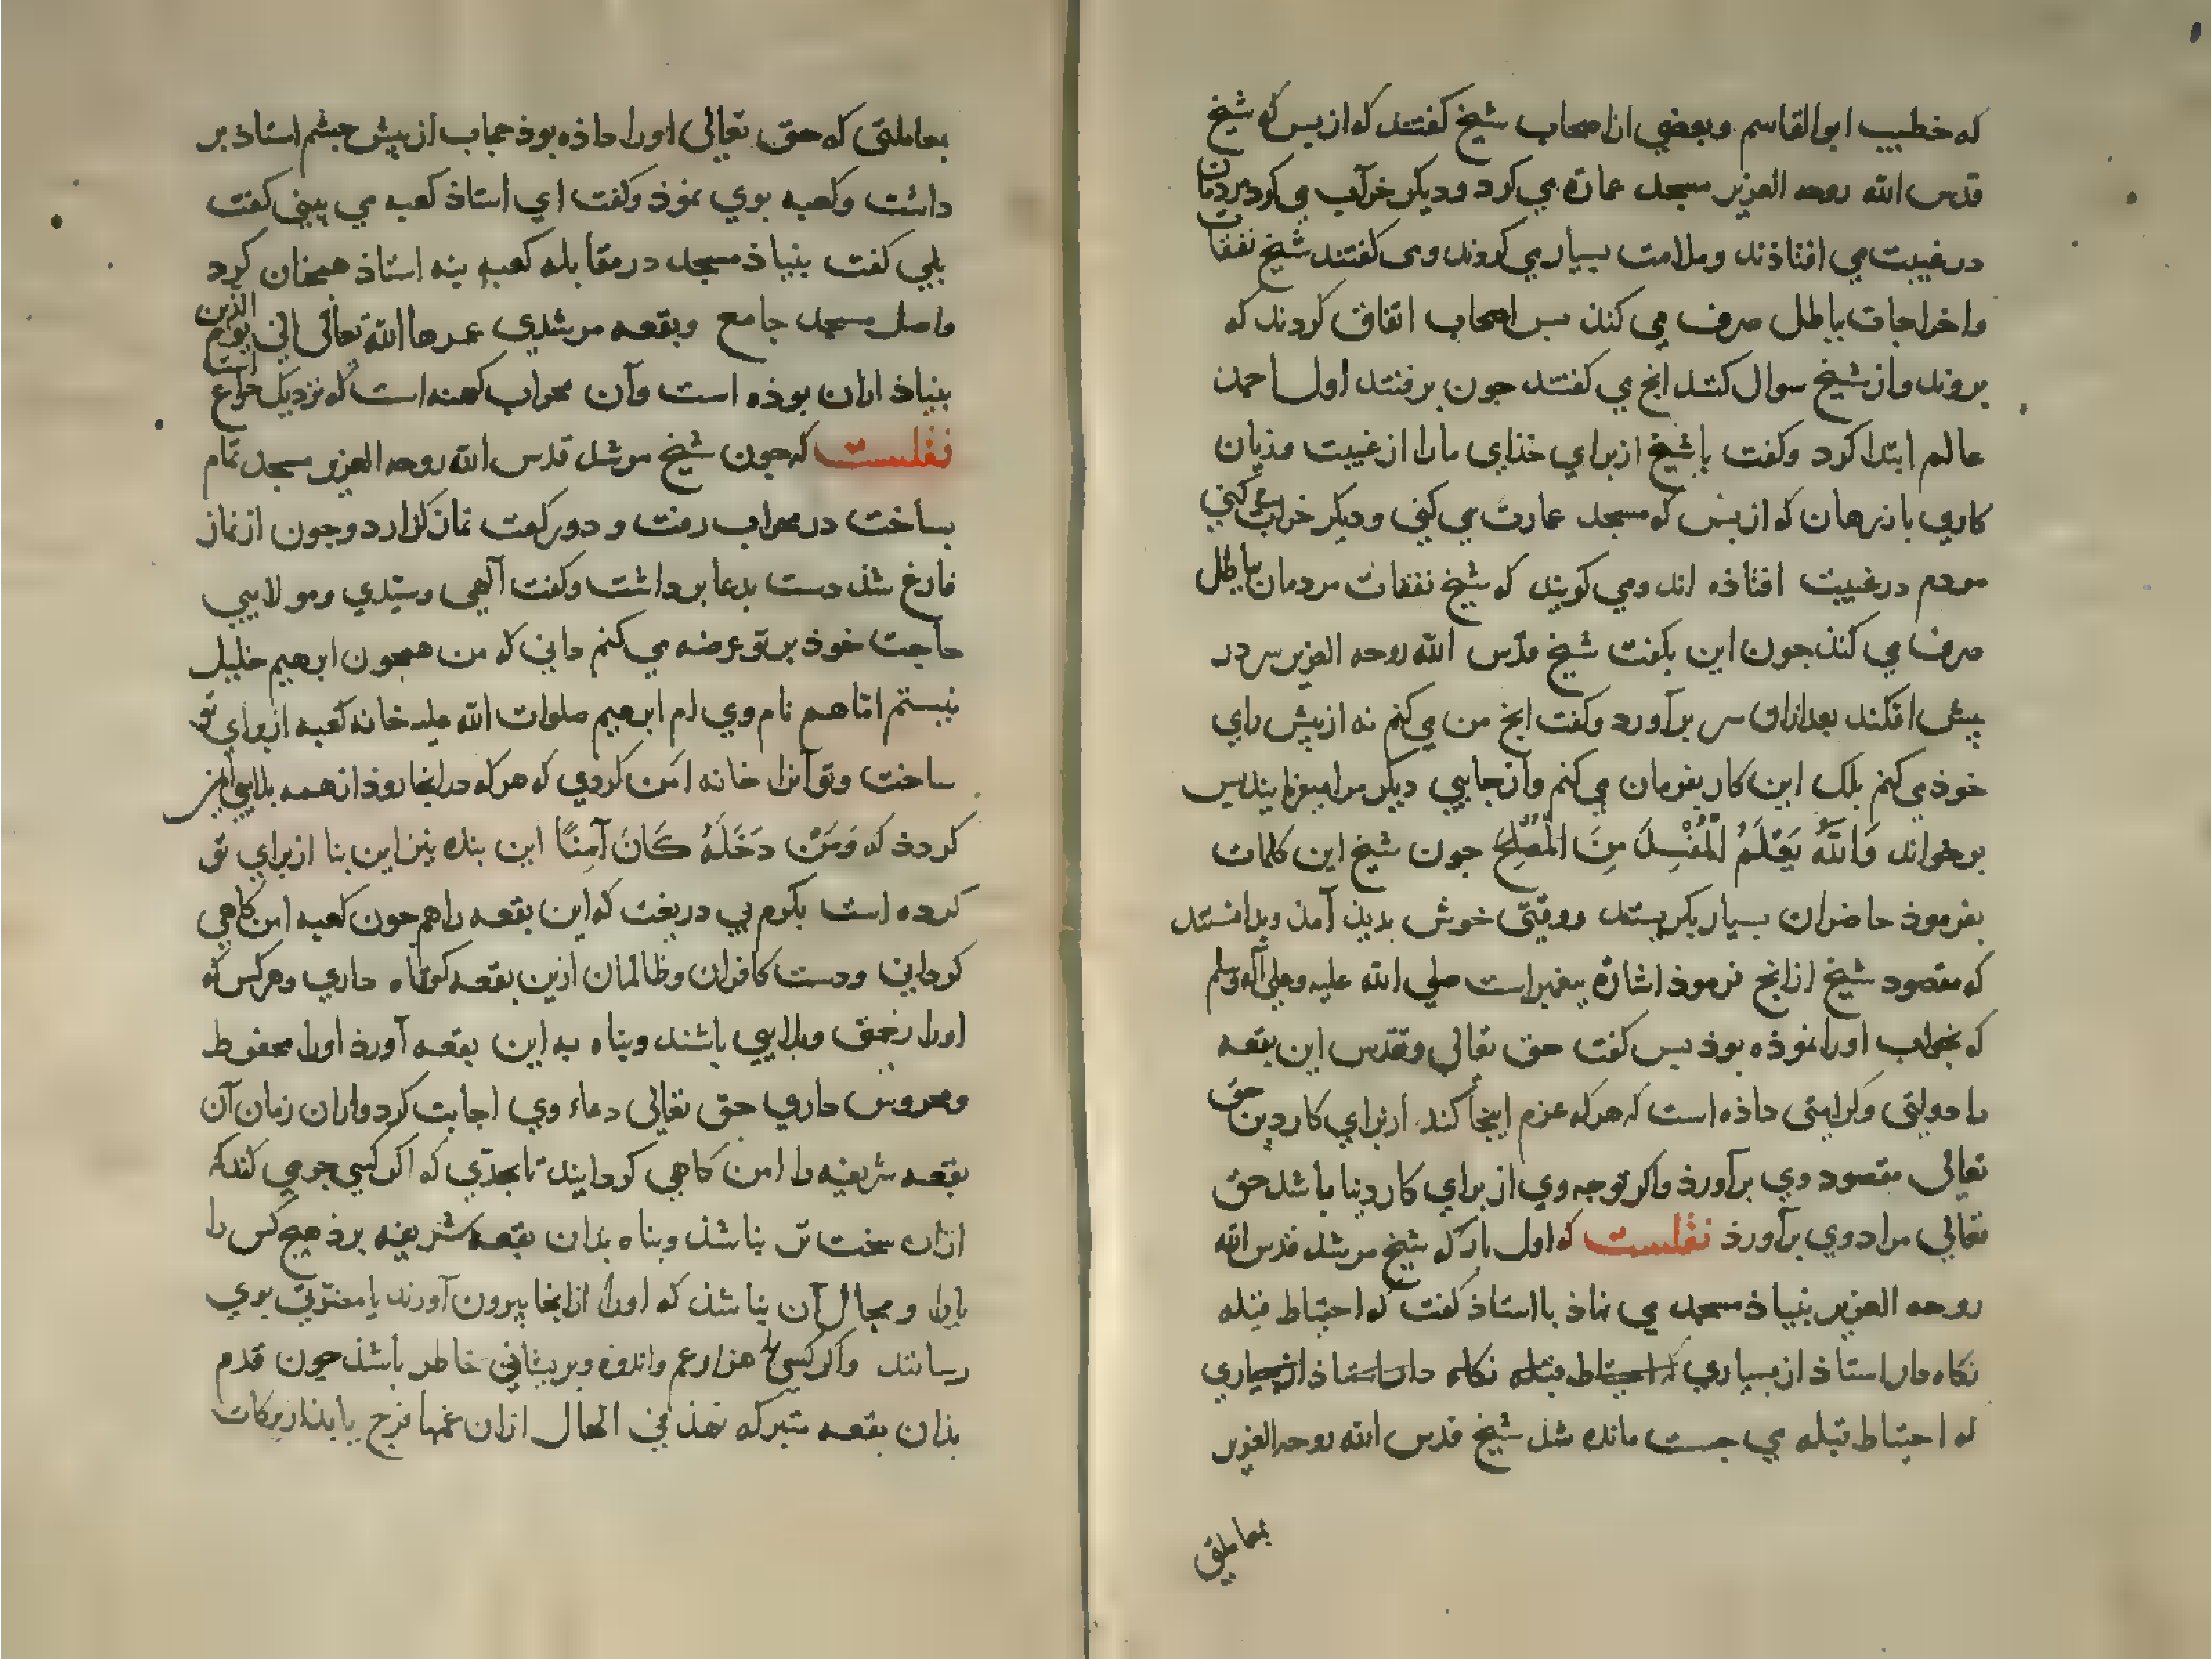 که خطیب ابوالقاسم وبعضی از اصحاب شیخ کفتند که از بس که شیخ
قدس الله روحه العزیز مسجد عمارة می کرد ودیکر خراب می کرد مردمان
در غیبت می افتاذند وملامت بسیار می کردند ومی کفتند شیخ نفقات
واخراجات باطل صرف می کند بس اصحاب اتفاق کردند که
بروند واز شیخ سوال کنند انج می کفتند جون برفتند اول احمد
عالم ابتدا کرد وکفت یا شیخ از برای خذای ما را از غیبت وزیان
کاری باز رهان که از بس که مسجد عمارت می کنی ودیکر خراب می کنی
مردم در غیبت افتاذه اند ومی کویند که شیخ نفقات مردمان باطل
صرف می کند جون این بکفت شیخ قدس الله روحه العزیز سر در
پیش افکند بعد ازان سر برآورد وکفت انج من می کنم نه از پیش رای
خوذ می کنم بلک این کار بفرمان می کنم واز جایی دیکر مرا میفرمایند بس
برخواند وَاللَّهُ يَعْلَمُ الْمُفْسِدَ مِنَ الْمُصْلِحِ جون شیخ این کلمات
بفرموذ حاضران بسیار بکریستند ووقتی خوش بدید آمذ وبدانستند
که مقصود شیخ ازانج فرموذ اشارة پیغمبر است صلی الله علیه وعلی آله وسلم
که بخواب اورا نموذه بوذ بس کفت حق تعالی وتقدس این بقعه
را دولتی وکرامتی داذه است که هر که عزم اینجا کند از برای کار دین حق
تعالی مقصود وی برآورذ واکر توجه وی از برای کار دنیا باشد حق
تعالی مراد وی برآورذ نقلست که اول بار که شیخ مرشد قدس الله
روحه العزیز بنیاذ مسجد می نهاذ با استاذ کفت که احتیاط قبله
نکاه دار استاذ از بسیاری که احتیاط قبله نکاه دار استاذ از بسیاری
که احتیاط قبله می جست مانده شذ شیخ قدس الله روحه العزیز
بمعاملتی
بمعاملتی که حق تعالی اورا داذه بوذ حجاب از پیش جشم استاذ بر
داشت وکعبه بوی نموذ وکفت ای استاذ کعبه می بینی کفت
بلی کفت بنیاذ مسجد در مقابله کعبه بنه استاذ همجنان کرد
واصل مسجد جامع وبقعه مرشدی عمرها الله تعالی الی یوم الدین
بنیاذ ازان بوذه است وآن محراب کهنه است که نزدیک است
نقلست که جون شیخ مرشد قدس الله روحه العزیز مسجد تمام
بساخت در محراب رفت و دو رکعت نماز کزارد وجون از نماز
فارغ شذ دست بدعا برداشت وکفت آلهی وسیّدی ومولایی
حاجت خوذ بر تو عرضه می کنم دانی که من همجون ابرهیم خلیل
نیستم امّا هم نام وی ام ابرهیم صلوات الله علیه خانه کعبه از برای تو
ساخت وتو آنرا خانه امن کردی که هر که در انجا روذ از همه بلایی ایمن
کردذ که وَمَنْ دَخَلَهُ كَانَ آمِنًا این بنده نیز این بنا از برای تو
کرده است بکرم بی دریغت که این بقعه را هم جون کعبه امن کاهی
کردانی ودست کافران وظالمان ازین بقعه کوتاه داری وهر کس که
اورا رنجی وبلایی باشد وبناه به این بقعه آورذ اورا محفوظ
ومحروس داری حق تعالی دعاء وی اجابت کرد وازان زمان آن
بقعه شریفه را امن کاهی کردانید تا بحدّی که اکر کسی جرمی کند که
ازان سخت تر نباشذ وبناه بدان بقعه شریفه برذ هیج کس را
یارا ومجال آن نباشذ که اورا ازانجا بیرون آورند یا مضرّتی بوی
رسانند واکر کسی را هزار غم واندوه وبریشانی خاطر باشذ جون قدم
بذان بقعه متبرکه نهذ فی الحال ازان غمها فرج یابذ از برکات